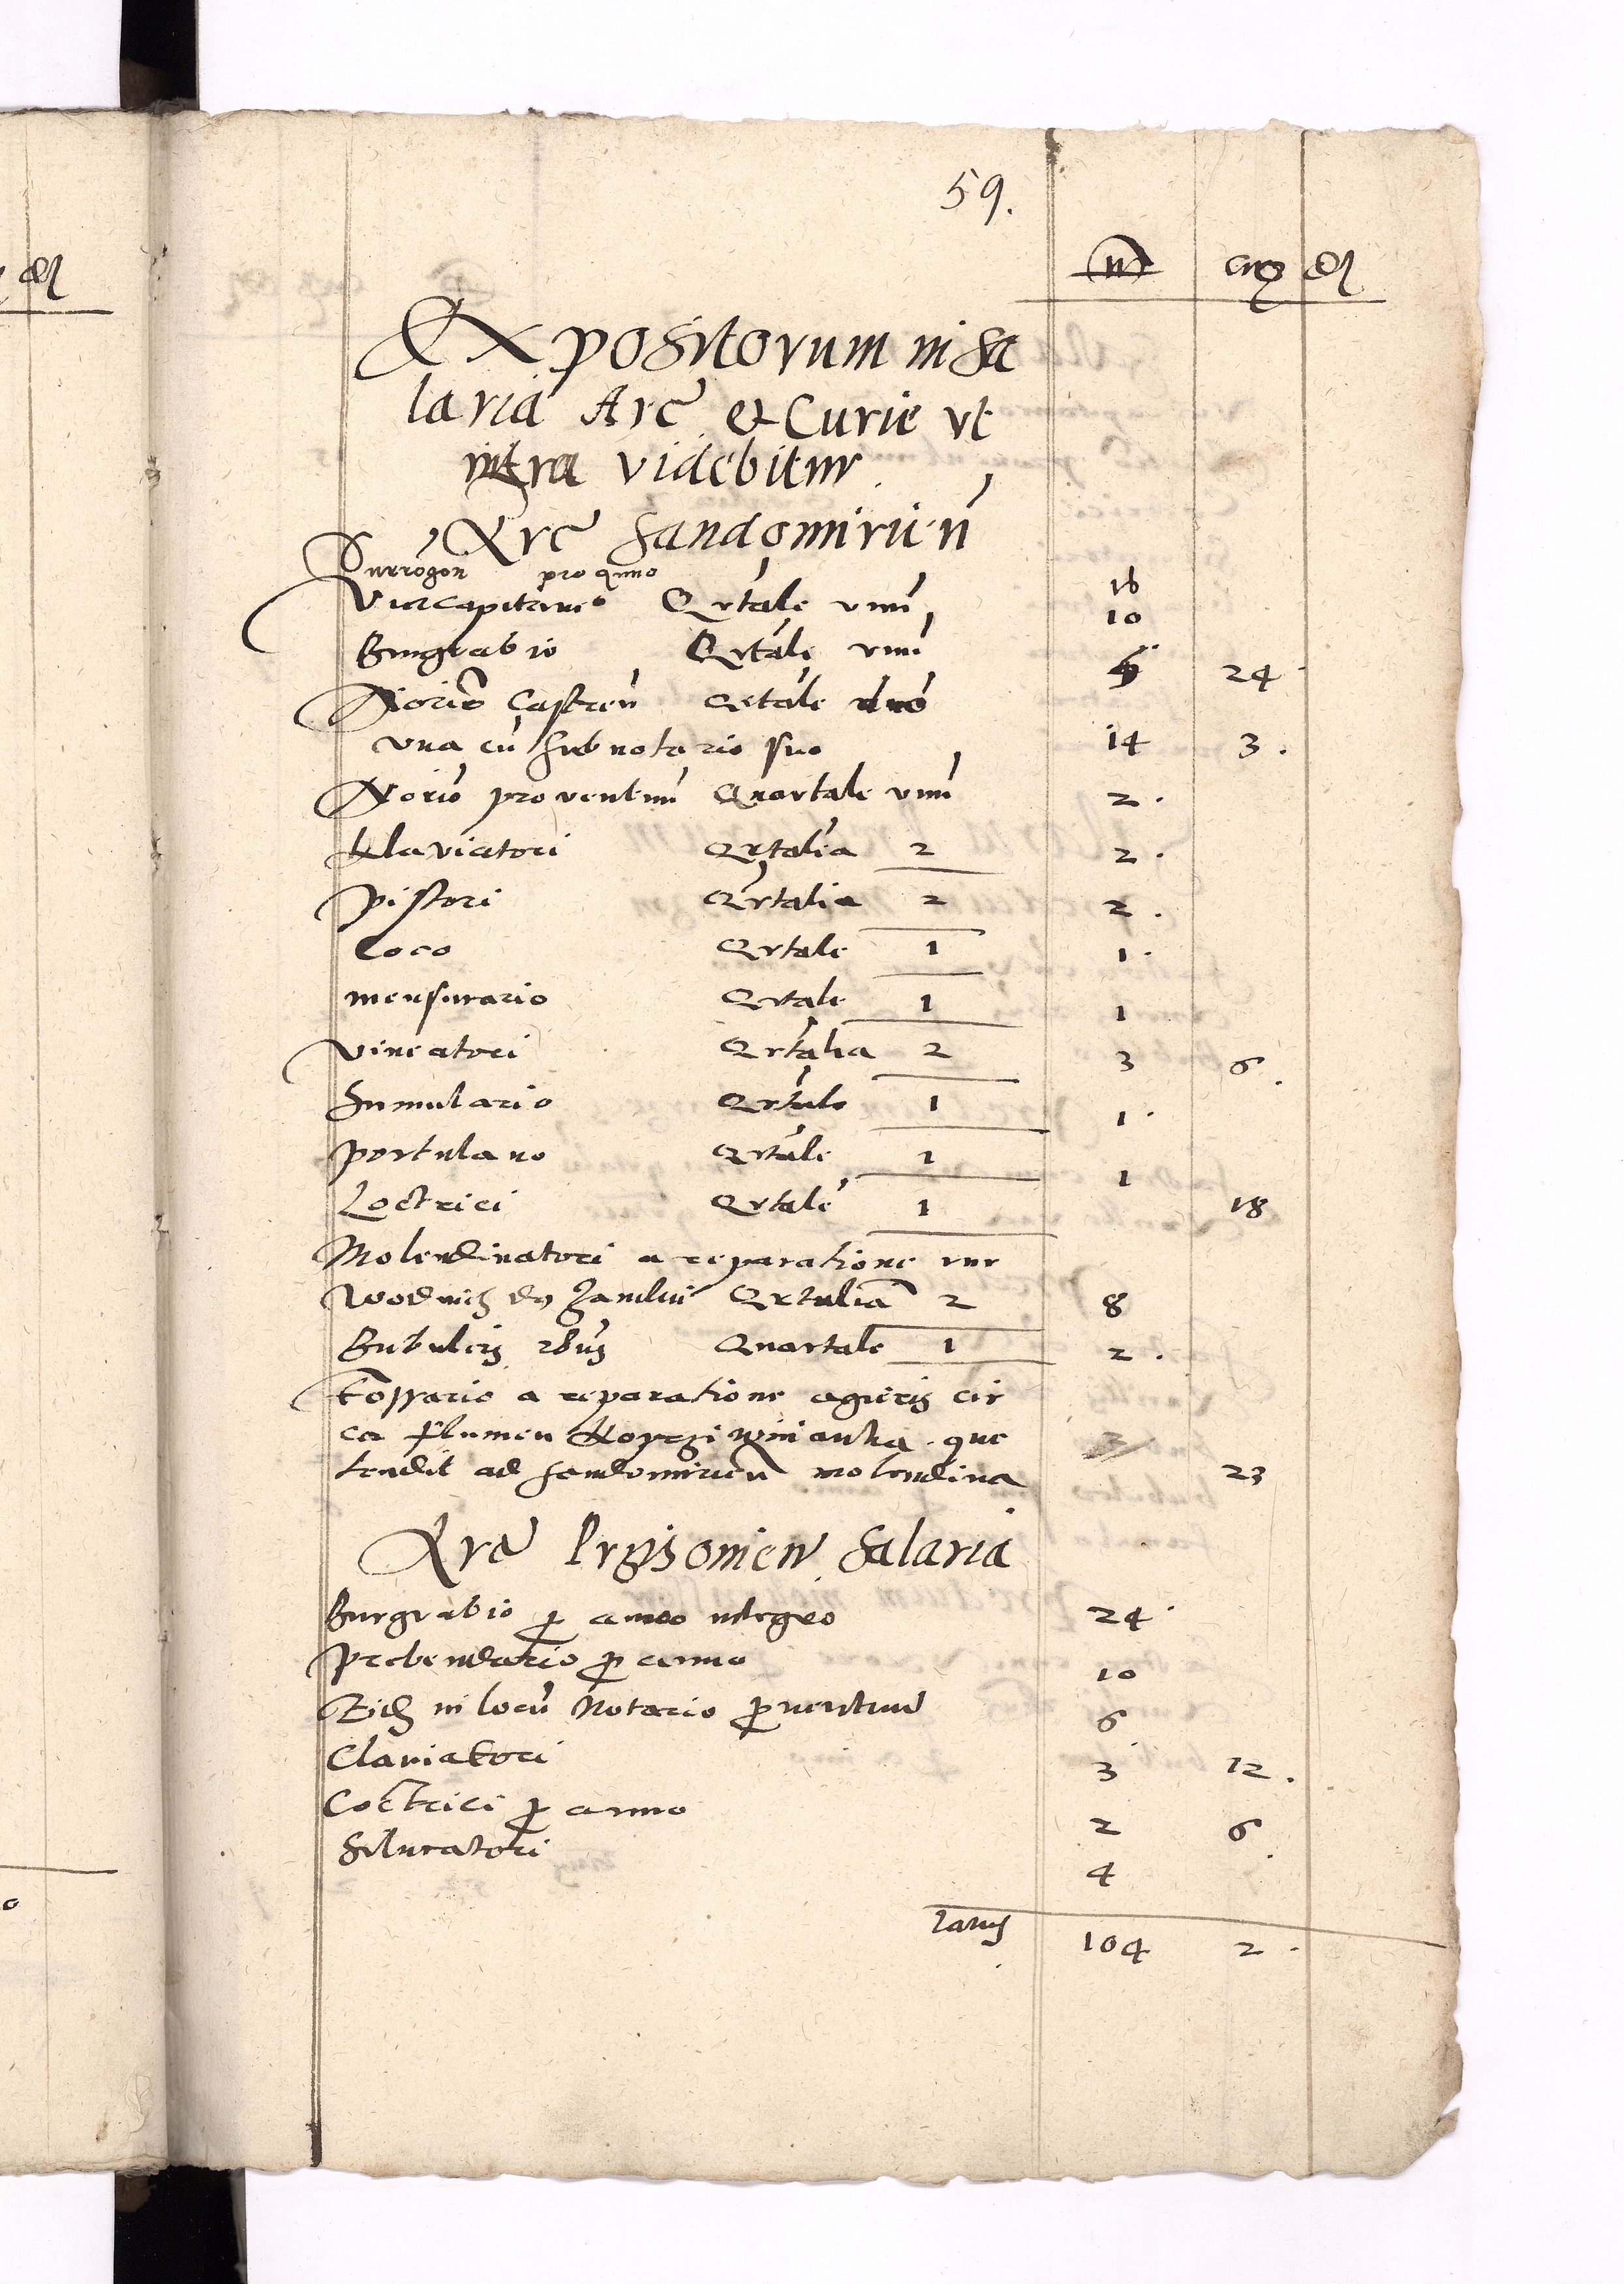 59.
m gr d
Expositorum in sa
laria Arc et Curie vt
infra videbitur.
Arc Sandomirien
Surrogon pro anno 16
Vicecapitaneo Qrtale vnu 10
Burgrabio Qrtale vnu 24
Notario Castren Qrtale duo
vna cu subnotario suo 14 3.
Notario proventuu Quartale vnu 2.
Klaviatori Qrtalia 2 2.
Pistori Qrtalia 2 2.
Coco Qrtale 1 1.
mensurario Qrtale 1 1
vineatori Qrtalia 2 3 6.
fumulario Qrtale 1 1.
portulano Qrtale 1 1
Loctrici Qrtale 1 18
Molendinatori a reparatione rur
wodnich do Zamku Qrtalia 2 8
Bubulcis Quartale 1 2.
Fossario a reparatione ageris cir
ca flumen Koprziwnianka que
tendit ad Sendomirien molendina 23
Arc salaria
Burgrabio p anno integro 24.
Prebendario p anno 10
Eid in locu Notario proventuu 6
Claviatori 3 12.
Coctrici p anno 2 6.
Silvratori 4
Latus 104 2.
d